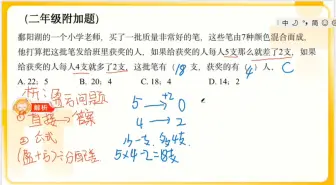 (二年级附加题)
鄱阳湖的一个小学老师，买了一批质量非常好的笔，这些笔由7种颜色混合而成，
他打算把这批笔发给班里获奖的人，如果给获奖的每人5支那么就差了2支，如果
给获奖的每人4支就多了2支，这批笔有（18）支，获奖的有（4）人。C
A. 22；5 B. 20；4 C. 18；4 D. 14；2
析：盈亏问题
解析
①直接→答案
②公式
(盈+亏)÷分配差
5 +2 0
4 → 2
少一支，
5×4-2=18支